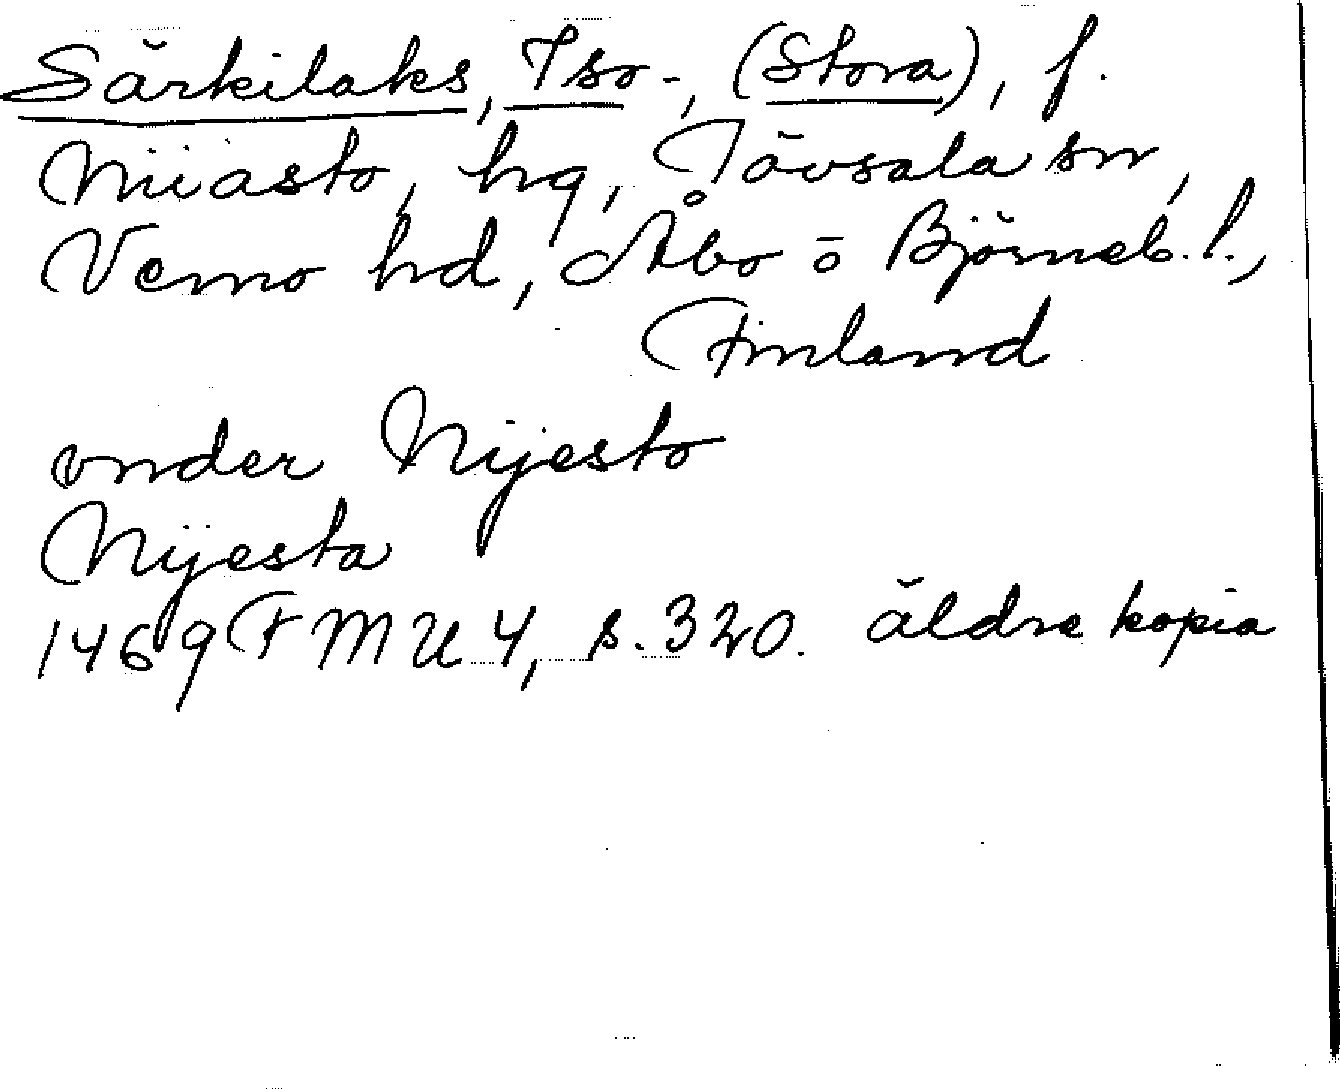 Särkilaks, Iso-, (Stora), f.
Niiasto, hg, Tövsala sn,
Vemo hd, Åbo ö Björneb. l.,
Finland
vnder Nijesto
Nijesta
1469 FMU 4, s. 320. äldre kopia